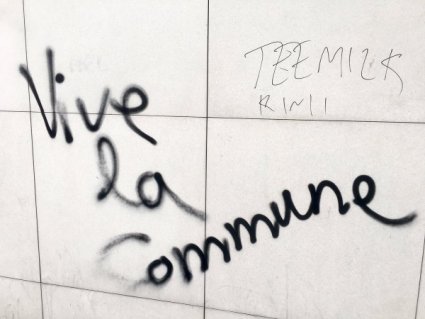 Vive
la
Commune
TEEMILK